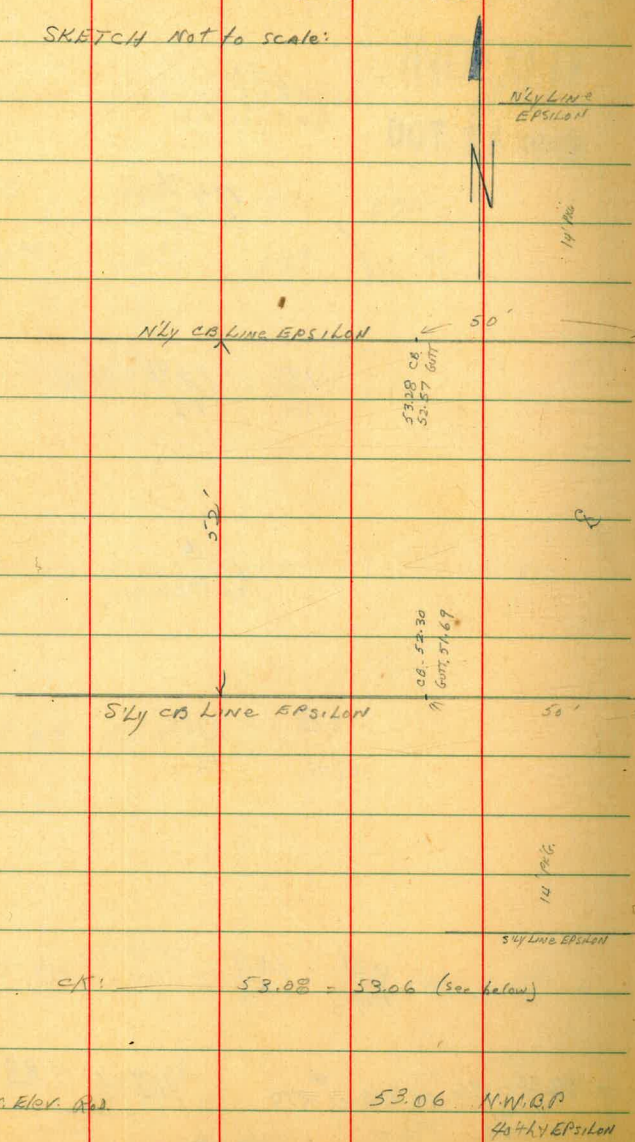 SKETCH Not to scale:
N'Ly LINE
EPSILON
N
14' PKG
50'
N'Ly CB LINE EPSILON
53.28 CB
52.57 GUTT
52'
CB - 52.30
GUTT. 51.69
S'Ly CB LINE EPSILON
50'
14' PKG.
S'Ly LINE EPSILON
CK: 53.08 = 53.06 (see below)
Elev. 53.06 N.W.B.P
EPSILON